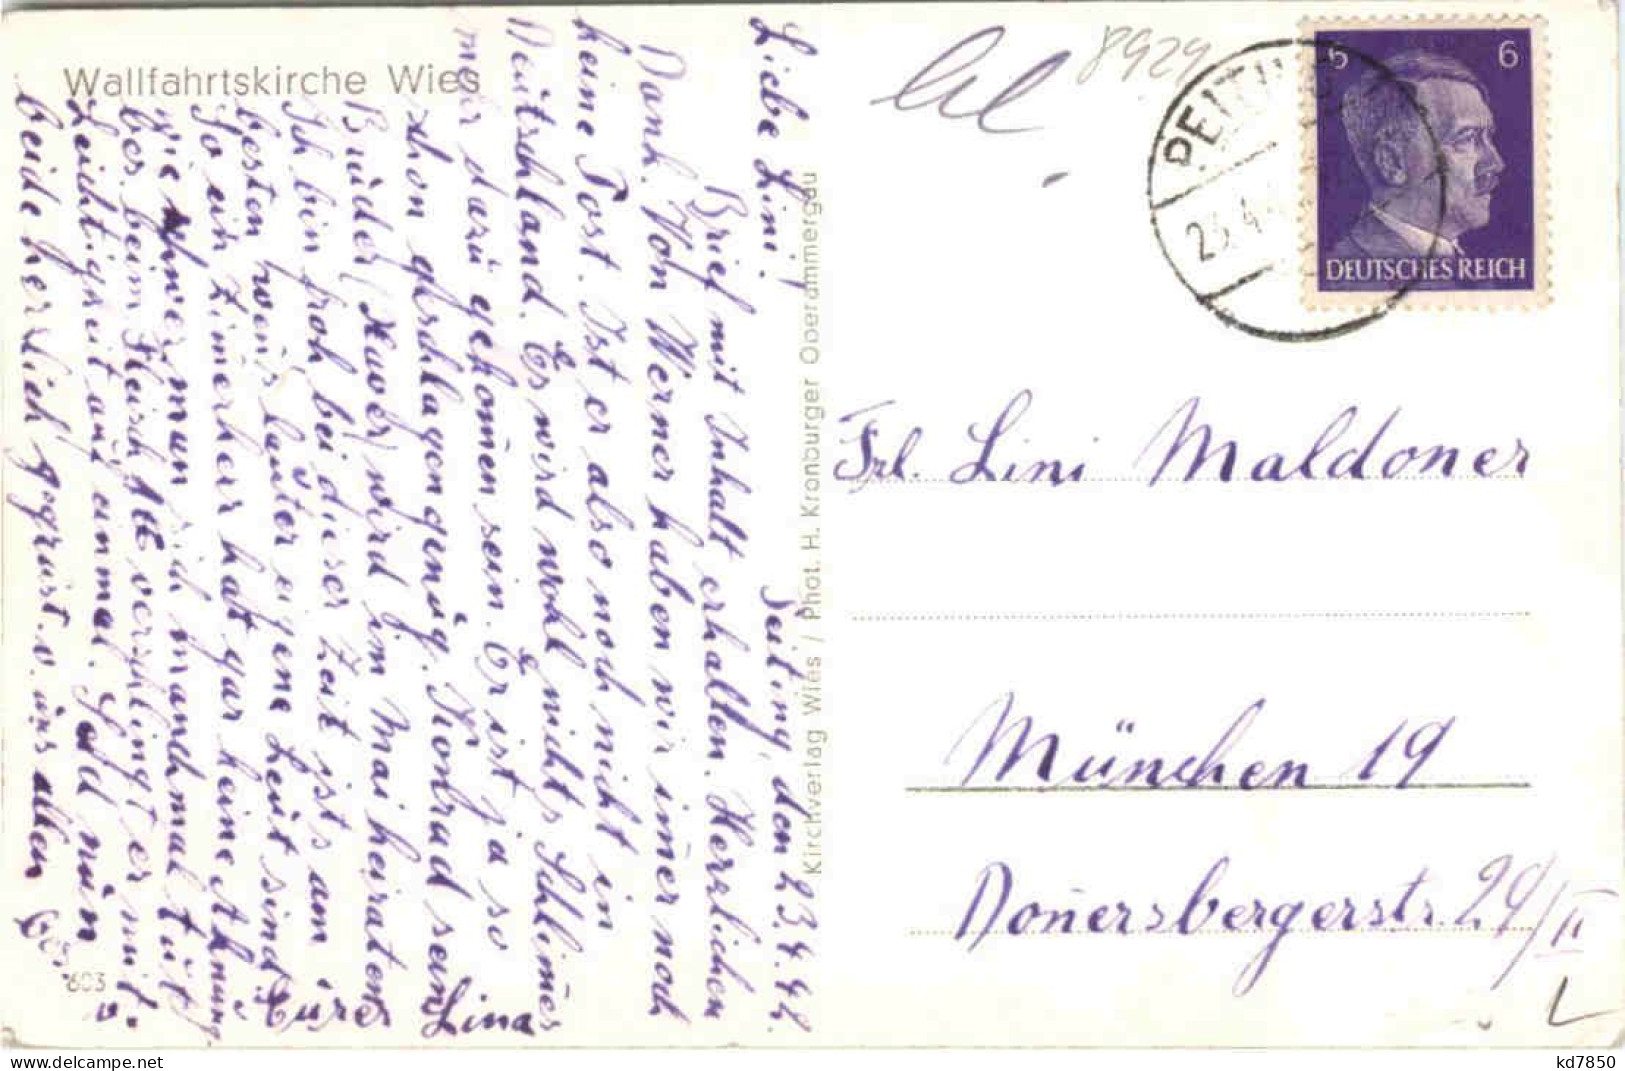 Wallfahrtskirche Wies
Peiting, den 23.4.42.
Liebe Lini!
Brief mit Inhalt erhalten. Herzlichen
Dank. Von Werner haben wir im̄er noch
keine Post. Ist er also noch nicht in
Deutschland. Es wird wohl nichts Schlim̄es
mehr dazu gekom̄en sein. Er ist ja so
schon geschlagen genug. Konrad sein
Bruder wird im Mai heiraten
Ich bin froh bei dieser Zeit ists am
besten wen̄s lauter eigene Leut sind.
So ein Zim̄erherr hat gar keine Ahnung
wie schwer man sich manchmal tut
bes. beim Fleisch verschlingt er mit
Leichtigkeit auf einmal. nun
beide herzlich gegrüßt v. uns allen
Eure
Lina
603
Kirchverlag Wies / Phot. H. Kronburger Oberammergau
8924
6 6
DEUTSCHES REICH
PEITING
Frl. Lini Maldoner
München 19
Don̄ersbergerstr. 29/II
L
kd7850